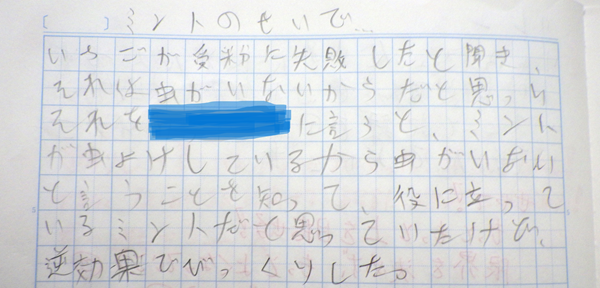 [ ] ミントのせいで…
いちごが受粉に失敗したと聞き、
それは虫がいないからだと思い
それを に言うと、ミント
が虫よけしているから虫がいない
と言うことを知って、役に立って
いるミントだと思っていたけど、
逆効果でびっくりした。